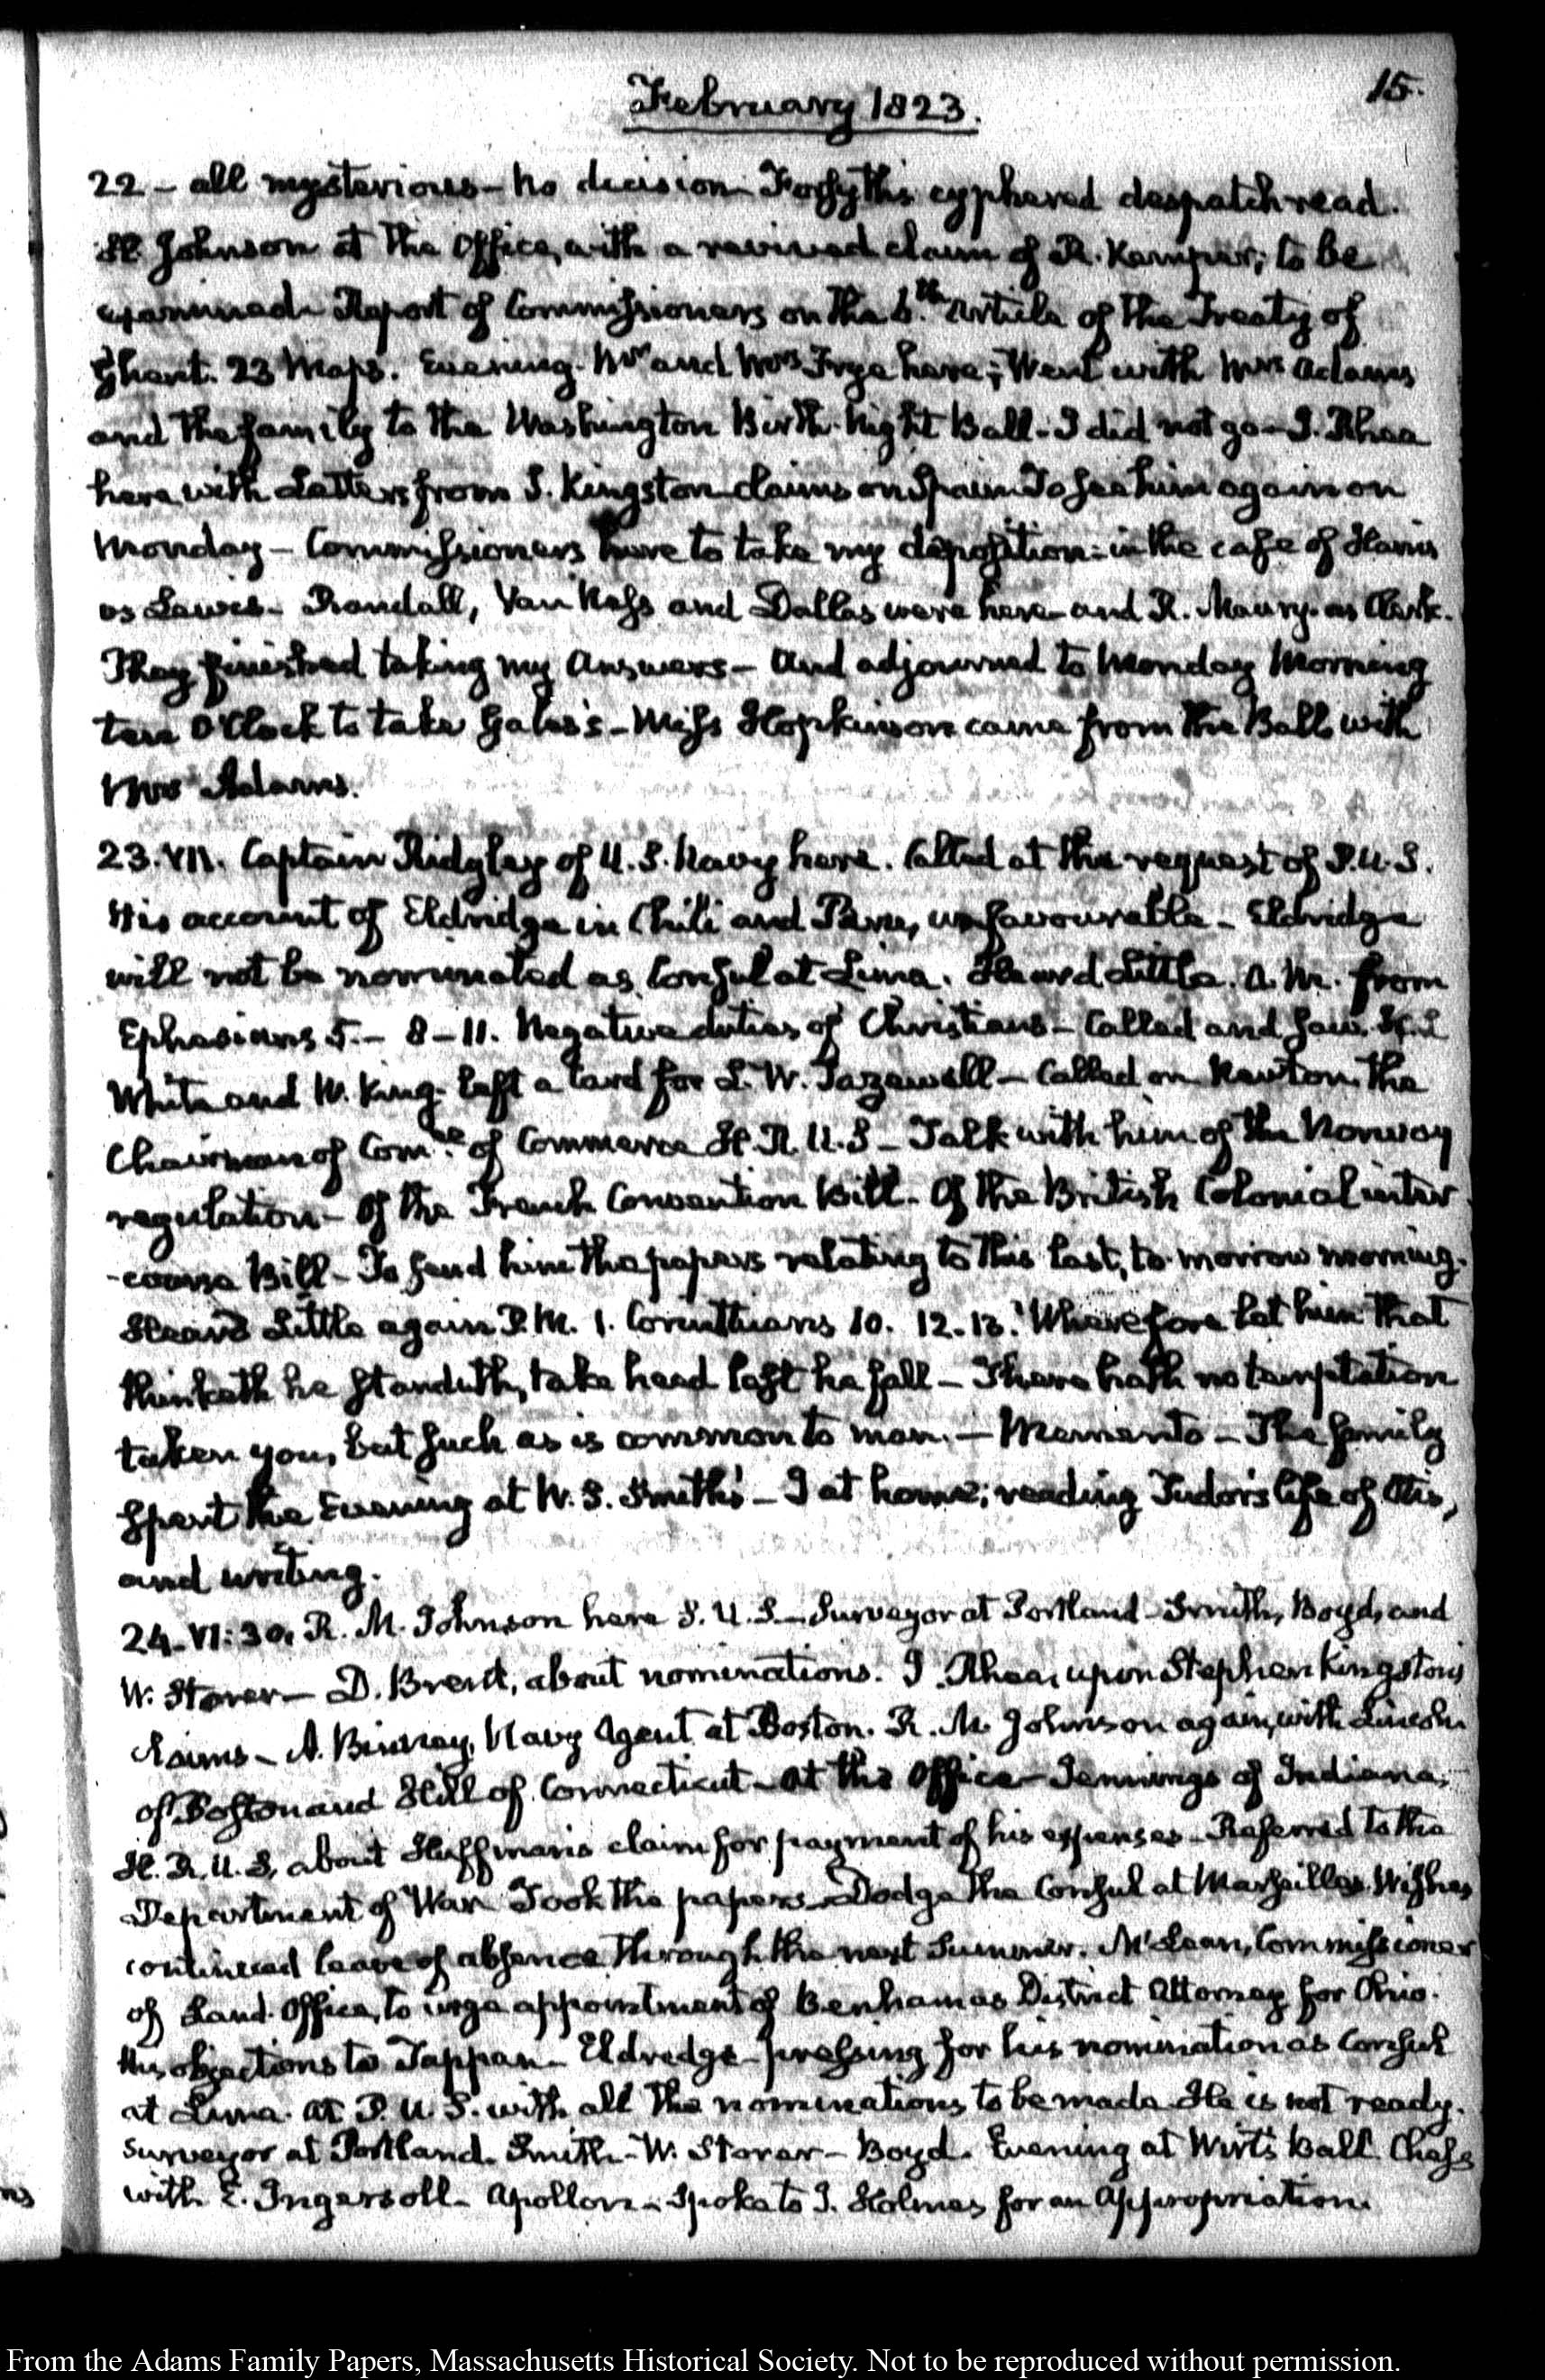 February 1823.
15.
22 - all mysterious - No decision - Forsyth's cyphered despatch read.
H. Johnson at the Office, with a revived claim of R. Kemper; to be
examined. Report of Commissioners on the 6.th Article of the Treaty of
Ghent. 23 Maps. Evening. Mr and Mrs Frye here; Went with Mrs Adams
and the family to the Washington Birth-Night Ball - I did not go - J. Rhea
here with Letters from S. Kingston claims on Spain To see him again on
Monday - Commissioners here to take my deposition: in the case of Harris
vs Lewis - Randall, Van Ness and Dallas were here - and R. Maury as Clerk.
They finished taking my Answers - And adjourned to Monday Morning
ten O'Clock to take Gales's - Miss Hopkinson came from the Ball with
Mrs Adams.
23. VII. Captain Ridgley of U. S. Navy here. Called at the request of P. U. S.
His account of Eldridge in Chili and Peru, unfavourable - Eldridge
will not be nominated as Consul at Lima. Heard Little. A. M. from
Ephesians 5. - 8-11. Negative duties of Christians - Called and saw H. L
White and W. King - left a Card for L. W. Tazewell - Called on Newton the
Chairman of Comee. of Commerce H. R. U. S - Talk with him of the Norway
regulation - Of the French Convention Bill - Of the British Colonial inter
-course Bill - To send him the papers relating to this last, to-morrow morning.
Heard Little again P. M. 1. Corinthians 10. 12.13. Wherefore let him that
thinketh he standeth, take heed lest he fall - There hath no temptation
taken you, but such as is common to man. - Memento - The family
spent the Evening at W. S. Smith's - I at home; reading Tudor's life of Otis,
and writing.
24. VI:30. R. M. Johnson here S. U. S. - Surveyor at Portland - Smith, Boyd, and
W. Storer - D. Brent, about nominations. J. Rhea, upon Stephen Kingston's
claims - A. Binney, Navy Agent at Boston. R. M. Johnson again, with Lincoln
of Boston and Hill of Connecticut - At the Office - Jennings of Indiana,
H. R. U. S, about Huffman's claim for payment of his expenses - Referred to the
Department of War Took the papers - Dodge the Consul at Marseilles. Wishes
continued leave of absence through the next Summer. McLean, Commissioner
of Land-Office, to urge appointment of Benham as District Attorney for Ohio.
His objections to Tappan - Eldredge - pressing for his nomination as Consul
at Lima. At P. U. S. with all the nominations to be made. He is not ready.
Surveyor at Portland. Smith - W. Storer - Boyd. Evening at Wirt's Ball. Chess
with E. Ingersoll - Apollon - Spoke to J. Holmes for an Appropriation.
From the Adams Family Papers, Massachusetts Historical Society. Not to be reproduced without permission.